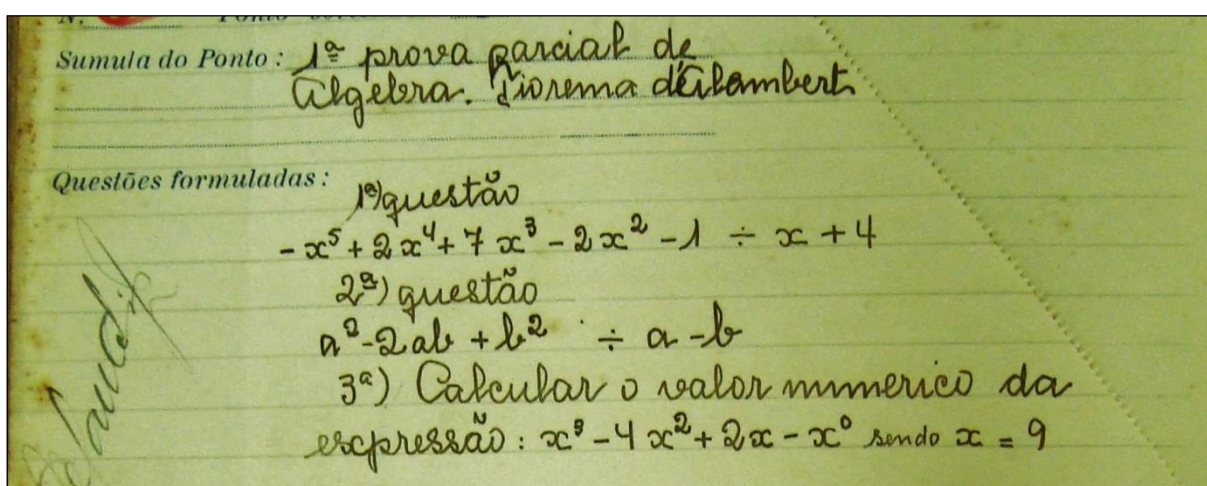 N.
Sumula do Ponto : 1ª prova parcial de
Algebra. Tiorema d'Alambert
Questões formuladas :
1ª) questão
- x⁵ + 2x⁴ + 7x³ - 2x² - 1 ÷ x + 4
2ª) questão
a² - 2ab + b² ÷ a - b
3ª) Calcular o valor numerico da
expressão : x³ - 4x² + 2x - x⁰ sendo x = 9